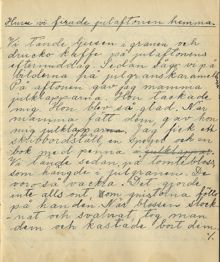 Huru vi firade julaftonen hemma.
Vi tände ljusen i granen och
drucko kaffe på julaftonens
eftermiddag. Sedan sågo vi på
bilderna på julgranskaramell
På aftonen gav jag mamma
julklapparna. Hon tackade
mig. Hon blev så glad. När
mamma fått dem, gav hon
mig julklapparna. Jag fick ett
skrivbordställ, en och en
bok med penna
Vi tände sedan på tomtebloss,
som hängde i julgranen. De
voro så vackra. Det gjorde
inte alls ont, om gnistorna föllo
på handen. När blossen slock-
nat och svalnat, tog man
dem och kastade bort dem.